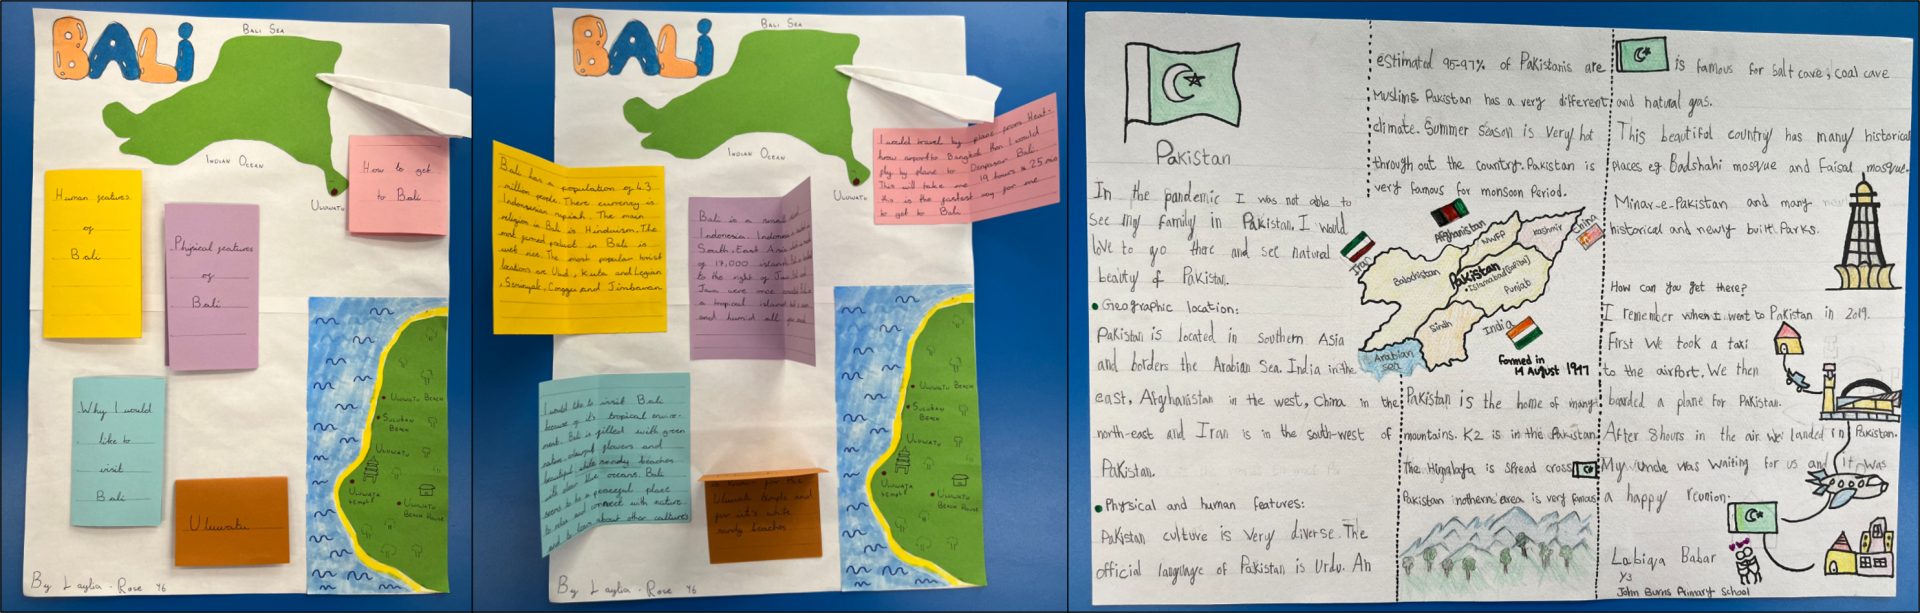 BALI
Bali Sea
Indian Ocean
Uluwatu
How to get
to Bali
Human features
of
Bali
Physical features
of
Bali
Why I would
like to
visit
Bali
Uluwatu
Uluwatu Beach
Suluban
Beach
Uluwatu
Uluwatu
temple
Uluwatu
Beach House
By Laylia-Rose Y6
BALI
Bali Sea
Indian Ocean
Uluwatu
I would travel by plane from Heat-
hrow airport to Bangkok then I would
fly by plane to Denpasar Bali.
This will take me 19 hours & 25 min
this is the fastest way for me
to get to Bali
Bali has a population of 4.3
million people. There currency is
Indonesian rupiah. The main
religion in Bali is Hinduism. The
most famed product in Bali is
wet rice. The most popular tourist
locations are Ubud, Kuta and Legian
, Seminyak, Canggu and Jimbaran
Bali is a small
Indonesia. Indonesia
South, East Asia
of 17,000 islands
to the right of Java
Java were once
a tropical island
and humid all
I would like to visit Bali
because of it's tropical enviro-
ment. Bali is filled with green
nature, colourful flowers and
beautiful white sandy beaches
with clear blue oceans. Bali
seems to be a peaceful place
to relax and connect with nature
and to learn about other cultures
is known for the
Uluwatu temple and
for it's white
sandy beaches
Uluwatu Beach
Suluban
Beach
Uluwatu
Uluwatu
temple
Uluwatu
Beach House
By Laylia-Rose Y6
Pakistan
In the pandemic I was not able to
see my family in Pakistan. I would
love to go there and see natural
beauty of Pakistan.
Geographic location:
Pakistan is located in Southern Asia
and borders the Arabian Sea. India in the
east, Afghanistan in the west, China in the
north-east and Iran is in the south-west of
Pakistan.
Physical and human features:
Pakistan culture is very diverse. The
official language of Pakistan is Urdu. An
estimated 95-97% of Pakistanis are
Muslims. Pakistan has a very different
climate. Summer season is very hot
through out the country. Pakistan is
very famous for monsoon Period.
Afghanistan
Iran
China
NWFP
Kashmir
Balochistan
Pakistan
Islamabad (Capital)
Punjab
Sindh
India
Arabian
sea
formed in
14 August 1947
Pakistan is the home of many
mountains. K2 is in the Pakistan.
The Himalaya is spread cross
Pakistan nothern area is very famous
is famous for salt cave, coal cave
and natural gas.
This beautiful country has many historical
places eg. Badshahi mosque and Faisal mosque.
Minar-e-Pakistan and many
historical and newly built Parks.
How can you get there?
I remember when I went to Pakistan in 2019.
First we took a taxi
to the airport. We then
boarded a plane for Pakistan.
After 8 hours in the air we landed in Pakistan.
My uncle was waiting for us and it was
a happy reunion.
Labiqa Babar
Y3
John Burns Primary School